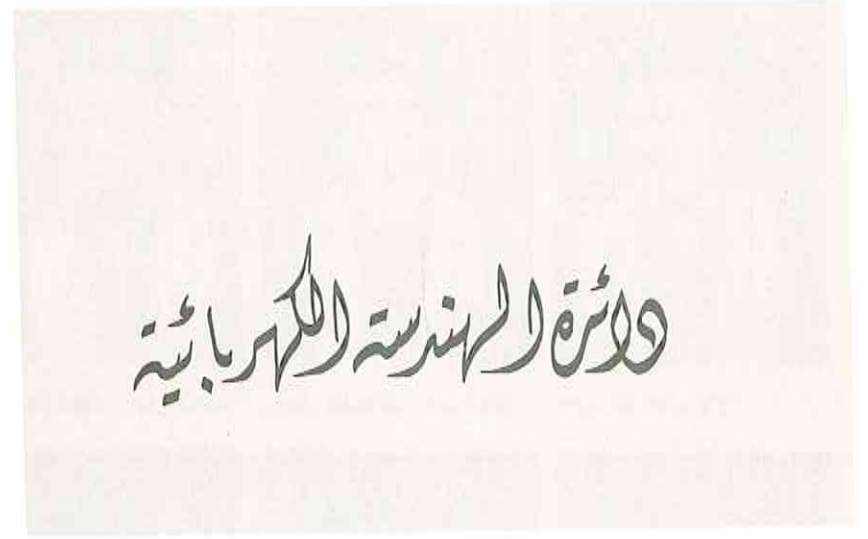 دائرة الهندسة الكهربائية